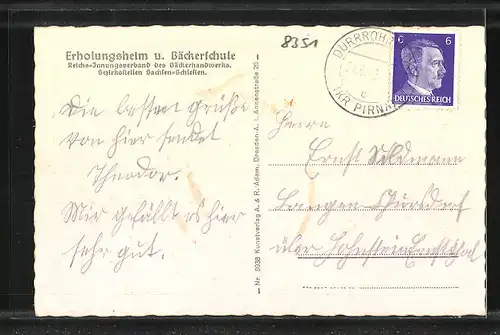 Erholungsheim u. Bäckerschule
Reichs-Innungsverband des Bäckerhandwerks.
Bezirksstellen Sachsen-Schlesien.
Die besten Grüße
von hier sendet
Theodor.
Mir gefällt es hier
sehr gut.
Nr. 8938 Kunstverlag A. & R. Adam, Dresden-A. 1, Annenstraße 25
8351
DÜRRRÖHR
c
(KR PIRNA)
6 6
DEUTSCHES REICH
Herrn
Ernst
Langen
über Hohenstein Ernstthal